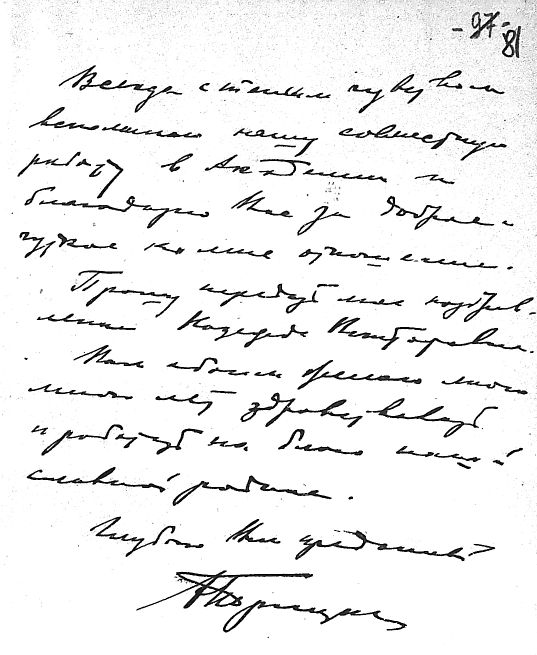 -97-
81
Всегда с теплым чувством
вспоминаю нашу совместную
работу в Академии и
благодарю Вас за доброе и
чуткое ко мне отношение.
Прошу передать мое поздрав-
ление
Вам обоим желаю много
много лет здравствовать
и работать на благо нашей
славной родины.
Глубоко Вам преданный